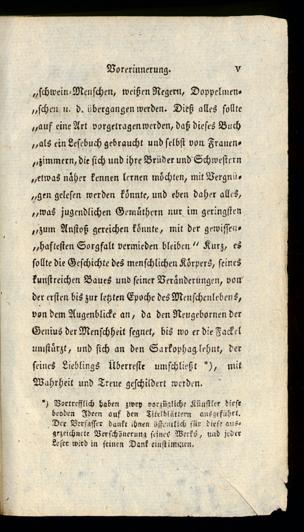 Vorerinnerung. V
„schwein-Menschen, weißen Negern, Doppelmen-
„schen u. d. übergangen werden. Dieß alles sollte
„auf eine Art vorgetragen werden, daß dieses Buch
„als ein Lesebuch gebraucht und selbst von Frauen-
„zimmern, die sich und ihre Brüder und Schwestern
„etwas näher kennen lernen möchten, mit Vergnü-
„gen gelesen werden könnte, und eben daher alles,
„was jugendlichen Gemüthern nur im geringsten
„zum Anstoß gereichen könnte, mit der gewissen-
„haftesten Sorgfalt vermieden bleiben“ Kurz, es
sollte die Geschichte des menschlichen Körpers, seines
kunstreichen Baues und seiner Veränderungen, von
der ersten bis zur letzten Epoche des Menschenlebens,
von dem Augenblicke an, da den Neugebornen der
Genius der Menschheit segnet, bis wo er die Fackel
umstürzt, und sich an den Sarkophag lehnt, der
seines Lieblings Überreste umschließt *), mit
Wahrheit und Treue geschildert werden.
*) Vortrefflich haben zwey vorzügliche Künstler diese
beyden Ideen auf den Titelblättern ausgeführt.
Der Verfasser dankt ihnen öffentlich für diese aus-
gezeichnete Verschönerung seines Werks, und jeder
Leser wird in seinen Dank einstimmen.